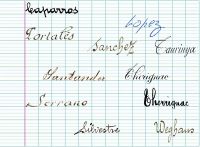 Caparros
Lopez
Portalés
Sanchez Taurinya
Santander Thurignac
Serrano Therrignac
Silvestre Weghans